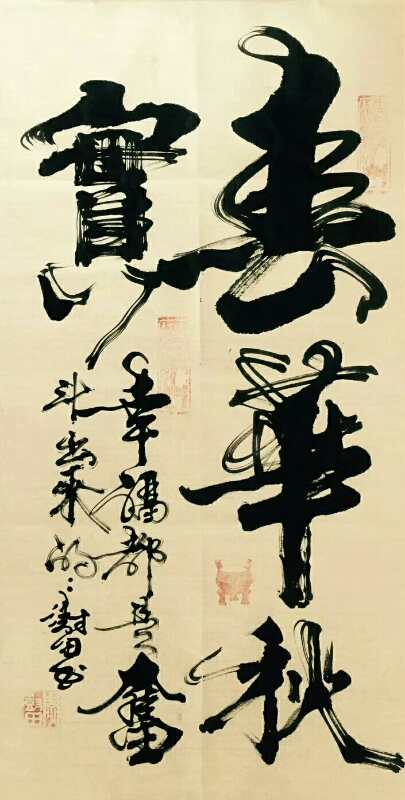 春華秋
實
幸福都是奮
斗出來的
謝田书